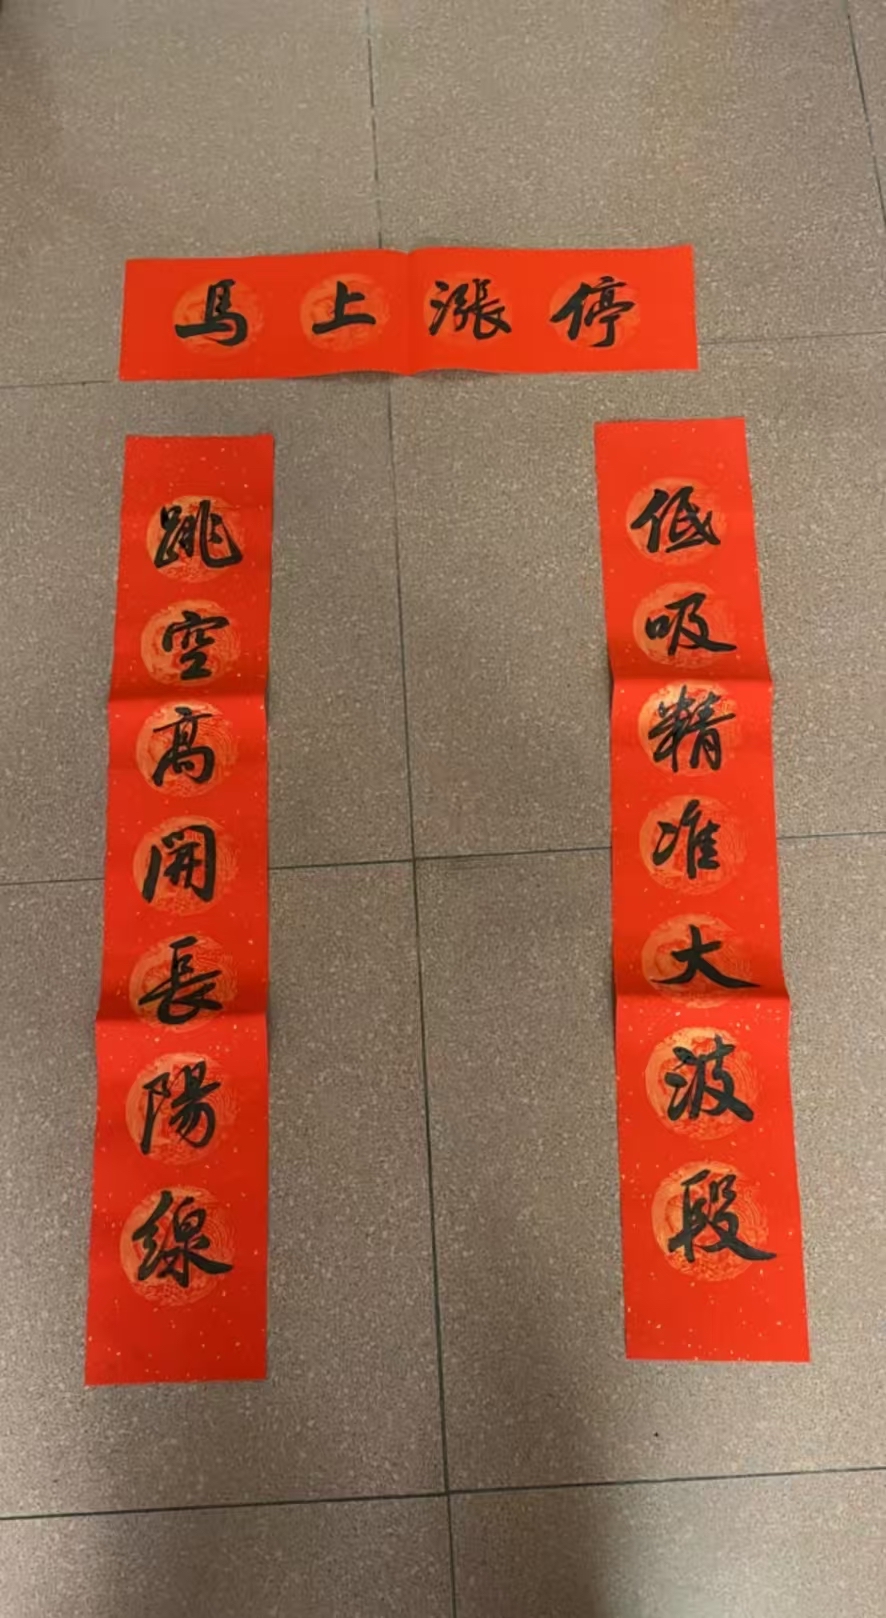 馬上漲停
跳空高開長陽線
低吸精准大波段